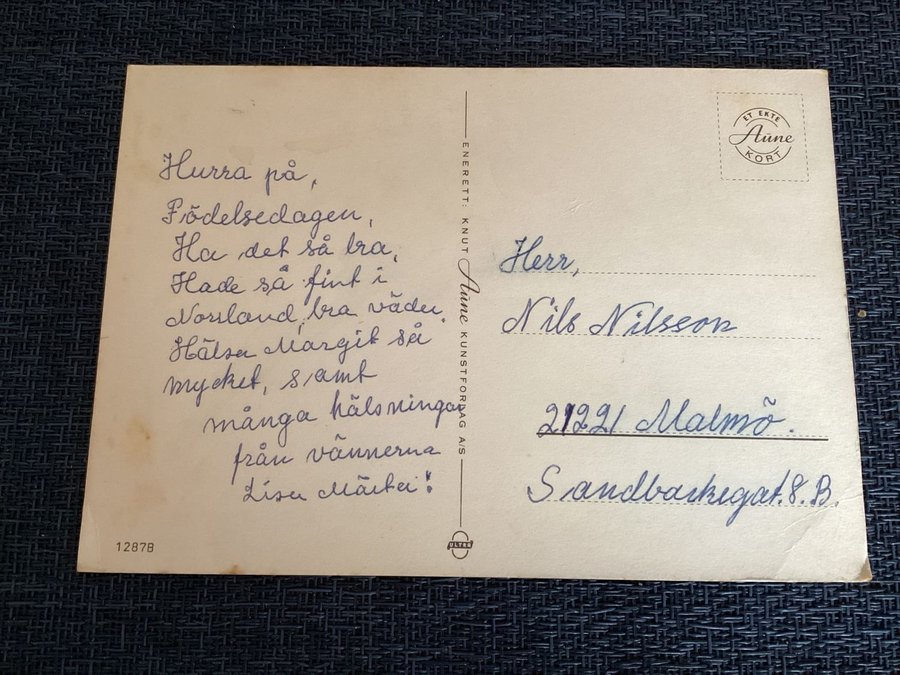 Hurra på,
Födelsedagen,
Ha det så bra,
Hade så fint i
Norrland, bra väder.
Hälsa Margit så
mycket, samt
många hälsningar
från vännerna
Lisa Märta!
1287B
ENERETT: KNUT Aune KUNSTFORLAG A/S
ULTRA
ET EKTE
Aune
KORT
Herr,
Nils Nilsson
21221 Malmö.
Sandbackegat. 8. B.